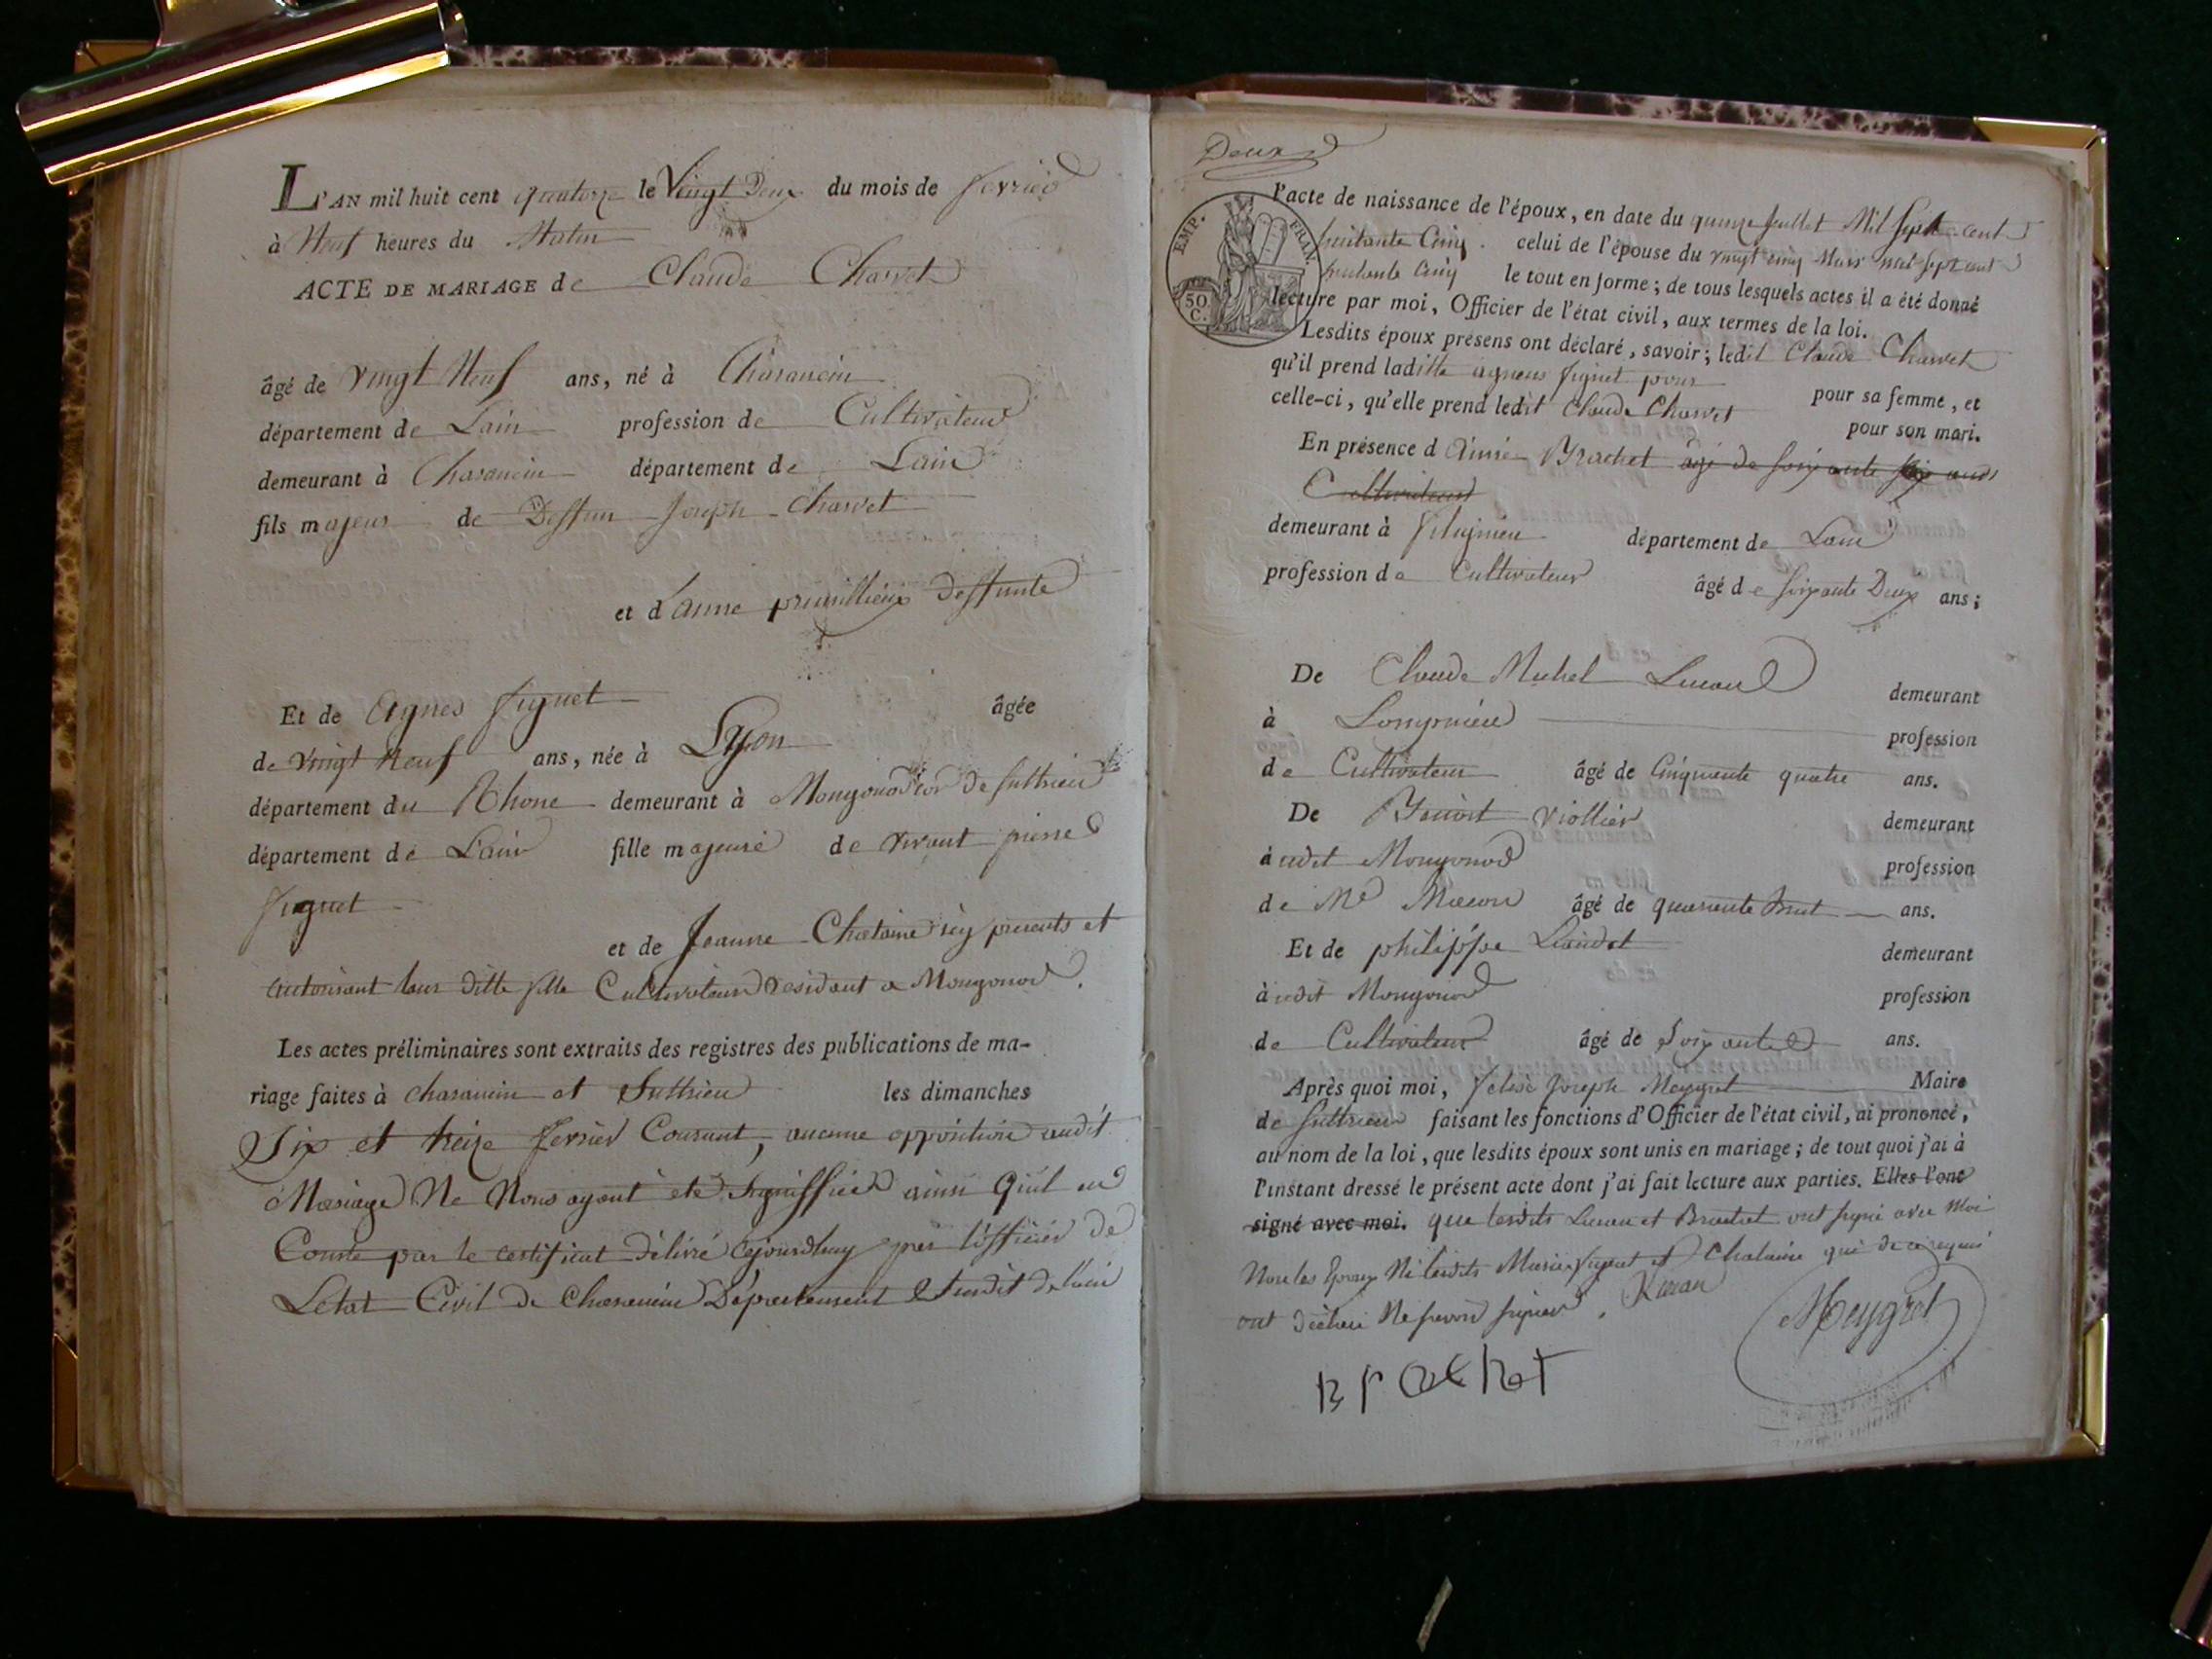 L'AN mil huit cent quatorze le Vingt Deux du mois de fevrier
à Neuf heures du Matin
ACTE DE MARIAGE de Claude Charvet
âgé de vingt Neuf ans, né à Charancin
département de Lain profession de Cultivateur
demeurant à Charancin département de Lain
fils majeur de Deffun Joseph Charvet
et d anne deffunte
Et de Agnes figuet âgée
de vingt neuf ans, née à Lyon
département du Rhone demeurant à Mongonod de Suttrieu
département de Lain fille majeure de vivant pierre
figuet
et de Jeanne Chataine icy presents et
autorisant leur ditte fille Cultivateurs residant a Mongonod.
Les actes préliminaires sont extraits des registres des publications de ma-
riage faites à charancin et Suttrieu les dimanches
Six et treize fevrier Courant, aucune opposition audit
Mariage Ne Nous ayant eté signiffiée ainsi Quil en
Conste par le certificat délivré cejourdhuy par l'officier de
Letat Civil de Charancin Département susdit de lain
Deux
EMP. FRAN.
50 C.
l'acte de naissance de l'époux, en date du quinze juillet Mil Sept cent
huitante Cinq. celui de l'épouse du vingt cinq Mars mil sept cent
huitante Cinq le tout en forme; de tous lesquels actes il a été donné
lecture par moi, Officier de l'état civil, aux termes de la loi.
Lesdits époux présens ont déclaré, savoir; ledit Claude Charvet
qu'il prend laditte agnes figuet pour pour sa femme, et
celle-ci, qu'elle prend ledit Claude Charvet pour son mari.
En présence d aimé Brachet agé de soixante ans
Cultivateur
demeurant à département de Lain
profession de Cultivateur âgé de soixante Deux ans;
De Claude Michel demeurant
à profession
de Cultivateur âgé de Cinquante quatre ans.
De Benoit viollier demeurant
à udit Mongonod profession
de Me Macon âgé de quarante huit ans.
Et de philippe demeurant
à udit Mongonod profession
de Cultivateur âgé de Soixante ans.
Après quoi moi, Joseph Meygret Maire
de Suttrieu faisant les fonctions d'Officier de l'état civil, ai prononcé,
au nom de la loi, que lesdits époux sont unis en mariage; de tout quoi j'ai à
l'instant dressé le présent acte dont j'ai fait lecture aux parties. Elles l'ont
signé avec moi. que lesdits et Brachet ont signé avec Moi
Non les Epoux Ni lesdits figuet et Chataine qui de ce requis
ont déclaré Ne savoir signer.
Meygret
Brachet